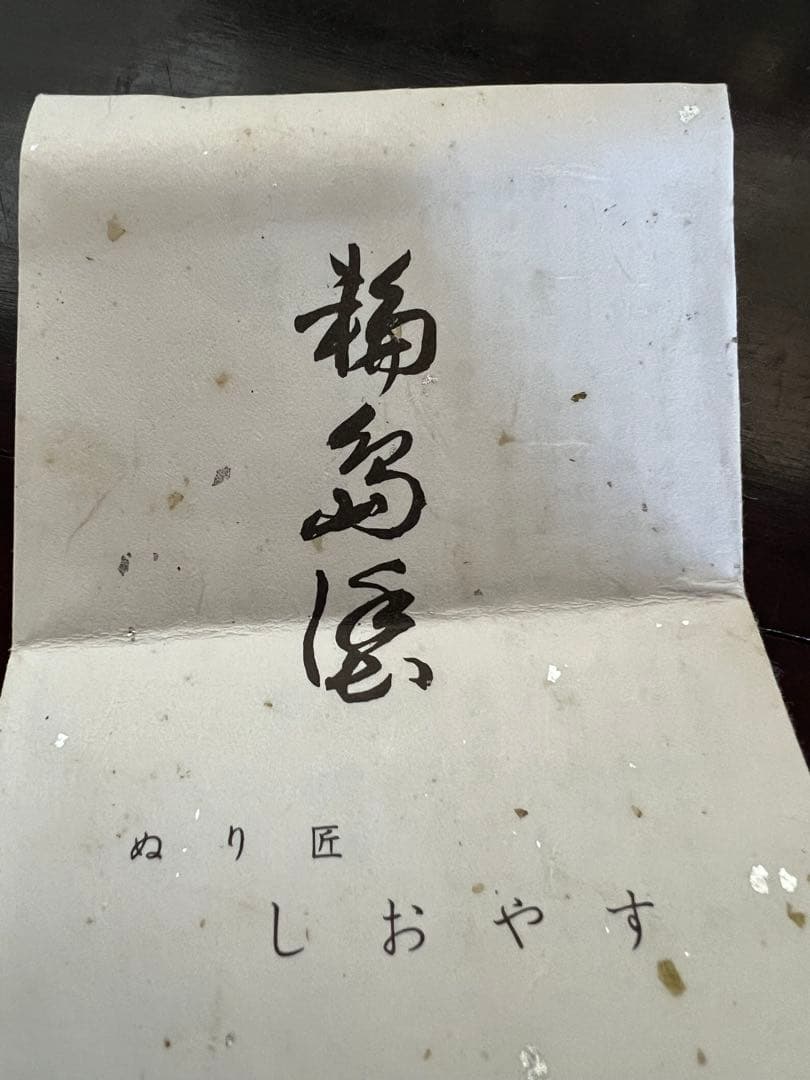 輪島塗
ぬり匠
しおやす